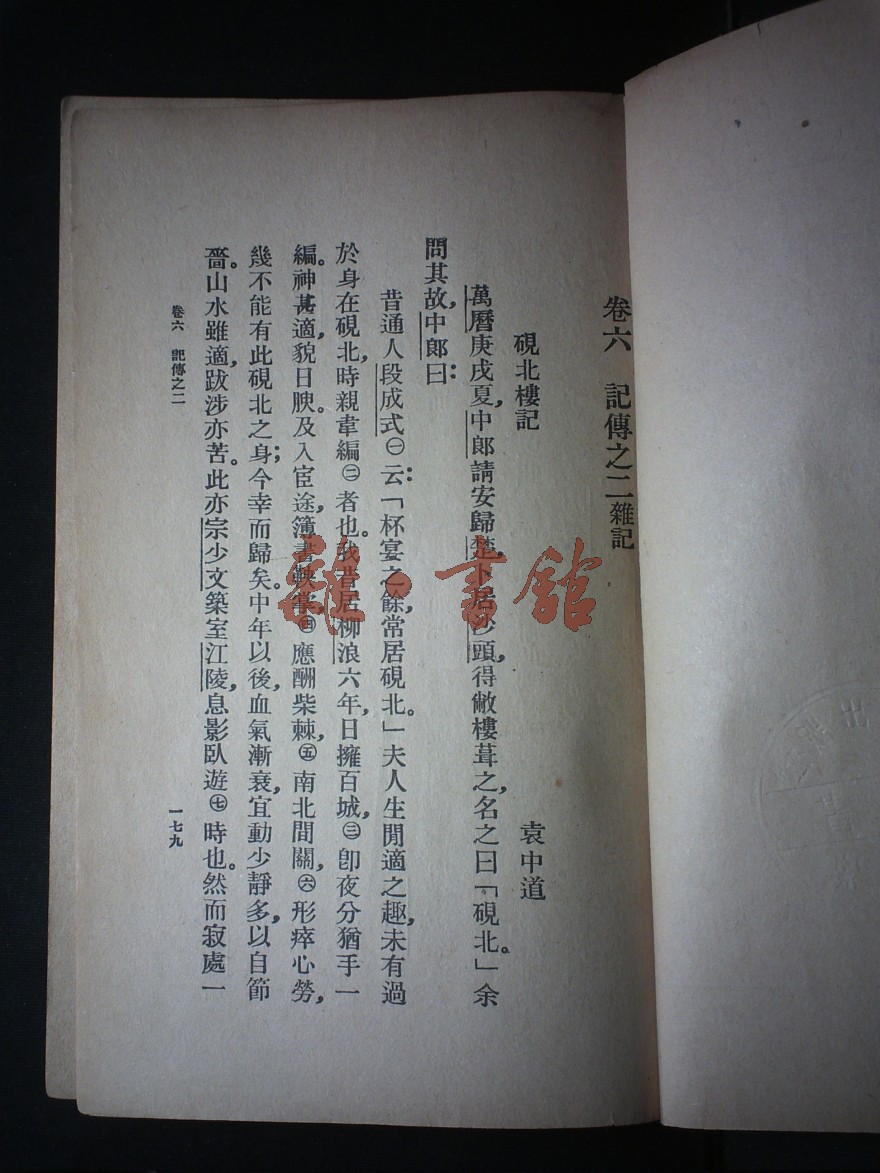 卷六　記傳之二雜記
硯北樓記　袁中道
萬曆庚戌夏，中郎請安歸楚，卜居沙頭，得敝樓葺之，名之曰「硯北。」余
問其故，中郎曰：
昔通人段成式㊀云：「杯宴之餘，常居硯北。」夫人生閒適之趣，未有過
於身在硯北，時親韋編㊁者也。我昔居柳浪六年，日擁百城，㊂卽夜分猶手一
編。神甚適，貌日腴。及入宦途，簿書鞅掌，㊃應酬柴棘，㊄南北間關，㊅形瘁心勞，
幾不能有此硯北之身；今幸而歸矣。中年以後，血氣漸衰，宜動少靜多，以自節
嗇。山水雖適，跋涉亦苦。此亦宗少文築室江陵，息影臥遊㊆時也。然而寂處一
卷六　記傳之二
一七九
雜·書館